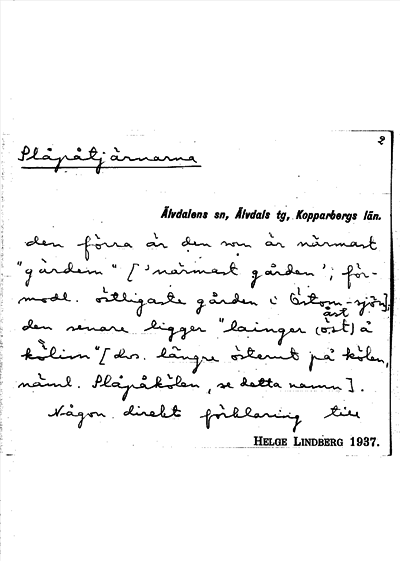 2
Slåpåtjärnarna
Älvdalens sn, Älvdals tg, Kopparbergs län.
den förra är den som är närmast
"gärdem" [ 'närmast gården'; för-
modl. östligaste gården i Östom-sjön];
åst
den senare ligger "lainger (öst) å
kölim" [dvs. längre österut på kölen,
näml. Slåpåkölen, se detta namn].
Någon direkt förklaring till
HELGE LINDBERG 1937.